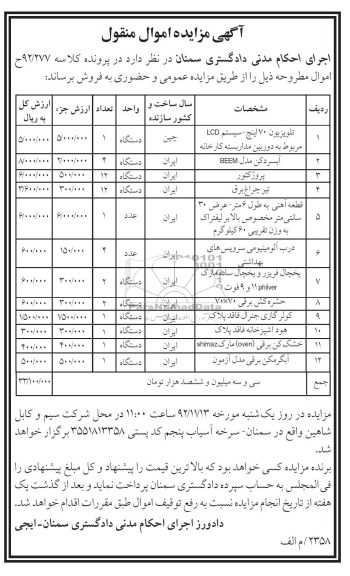 آگهی مزایده اموال منقول
اجرای احکام مدنی دادگستری سمنان در نظر دارد در پرونده کلاسه ۹۲/۲۷۷ح
اموال مطروحه ذیل را از طریق مزایده عمومی و حضوری به فروش برساند:
ردیف مشخصات سال ساخت و کشور سازنده واحد تعداد ارزش جزء ارزش کل به ریال
۱ تلویزیون ۷۰ اینچ-سیستم LCD مربوط به دوربین مداربسته کارخانه چین دستگاه ۱ ۵/۰۰۰/۰۰۰ ۵/۰۰۰/۰۰۰
۲ آبسردکن مدل BEEM ایران دستگاه ۴ ۲/۰۰۰/۰۰۰ ۸/۰۰۰/۰۰۰
۳ پروژکتور ایران دستگاه ۱۲ ۵۰۰/۰۰۰ ۶/۰۰۰/۰۰۰
۴ تیر چراغ برق ایران دستگاه ۱۲ ۳۰۰/۰۰۰ ۳/۶۰۰/۰۰۰
۵ قطعه آهنی به طول ۶ متر-عرض ۳۰ سانتی‌متر مخصوص بالابر لیفتراک به وزن تقریبی ۶۰ کیلوگرم ایران عدد ۱ ۶/۰۰۰/۰۰۰ ۶/۰۰۰/۰۰۰
۶ درب آلومینیومی سرویس‌های بهداشتی ایران عدد ۴ ۱۵۰/۰۰۰ ۶۰۰/۰۰۰
۷ یخچال فریزر و یخچال ساده مارک philver ۱۱ و ۹ فوت ایران دستگاه ۲ ۳۰۰/۰۰۰ ۶۰۰/۰۰۰
۸ حشره‌کش برقی ۷۰×۷۰ ایران دستگاه ۲ ۳۰۰/۰۰۰ ۶۰۰/۰۰۰
۹ کولر گازی جنرال فاقد پلاک ایران دستگاه ۱ ۱/۵۰۰/۰۰۰ ۱/۵۰۰/۰۰۰
۱۰ هود آشپزخانه فاقد پلاک ایران دستگاه ۱ ۳۰۰/۰۰۰ ۳۰۰/۰۰۰
۱۱ خشک‌کن برقی (oven) مارک shimaz ایران دستگاه ۱ ۴۰۰/۰۰۰ ۴۰۰/۰۰۰
۱۲ آبگرمکن برقی مدل آزمون ایران دستگاه ۱ ۵۰۰/۰۰۰ ۵۰۰/۰۰۰
جمع سی و سه میلیون و ششصد هزار تومان ۳۳/۱۰۰/۰۰۰
مزایده در روز یک‌شنبه مورخه ۹۲/۱۱/۱۳ ساعت ۱۱:۰۰ در محل شرکت سیم و کابل
شاهین واقع در سمنان- سرخه آسیاب پنجم کد پستی ۳۵۵۱۸۱۳۳۵۸ برگزار خواهد
شد.
برنده مزایده کسی خواهد بود که بالاترین قیمت را پیشنهاد و کل مبلغ پیشنهادی را
فی‌المجلس به حساب سپرده دادگستری سمنان پرداخت نماید و بعد از گذشت یک
هفته از تاریخ انجام مزایده نسبت به رفع توقیف اموال طبق مقررات اقدام خواهد شد.
دادورز اجرای احکام مدنی دادگستری سمنان-ایجی
۲۳۵۸/م الف